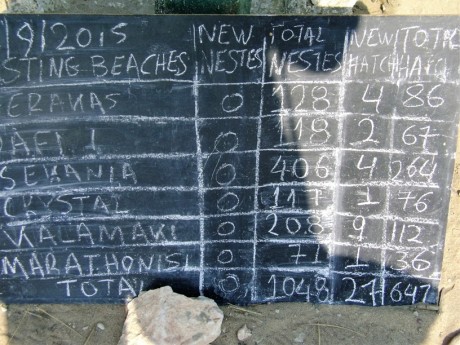 1/9/2015 NEW TOTAL NEW TOTAL
STING BEACHES NESTES NESTES HATCH HATC
ERAKAS 0 128 4 86
DAFI 1 0 118 2 67
SEKANIA 0 406 4 264
CRYSTAL 0 117 1 76
KALAMAKI 0 208 9 112
MARATHONISI 0 71 1 36
TOTAL 0 1048 27 647